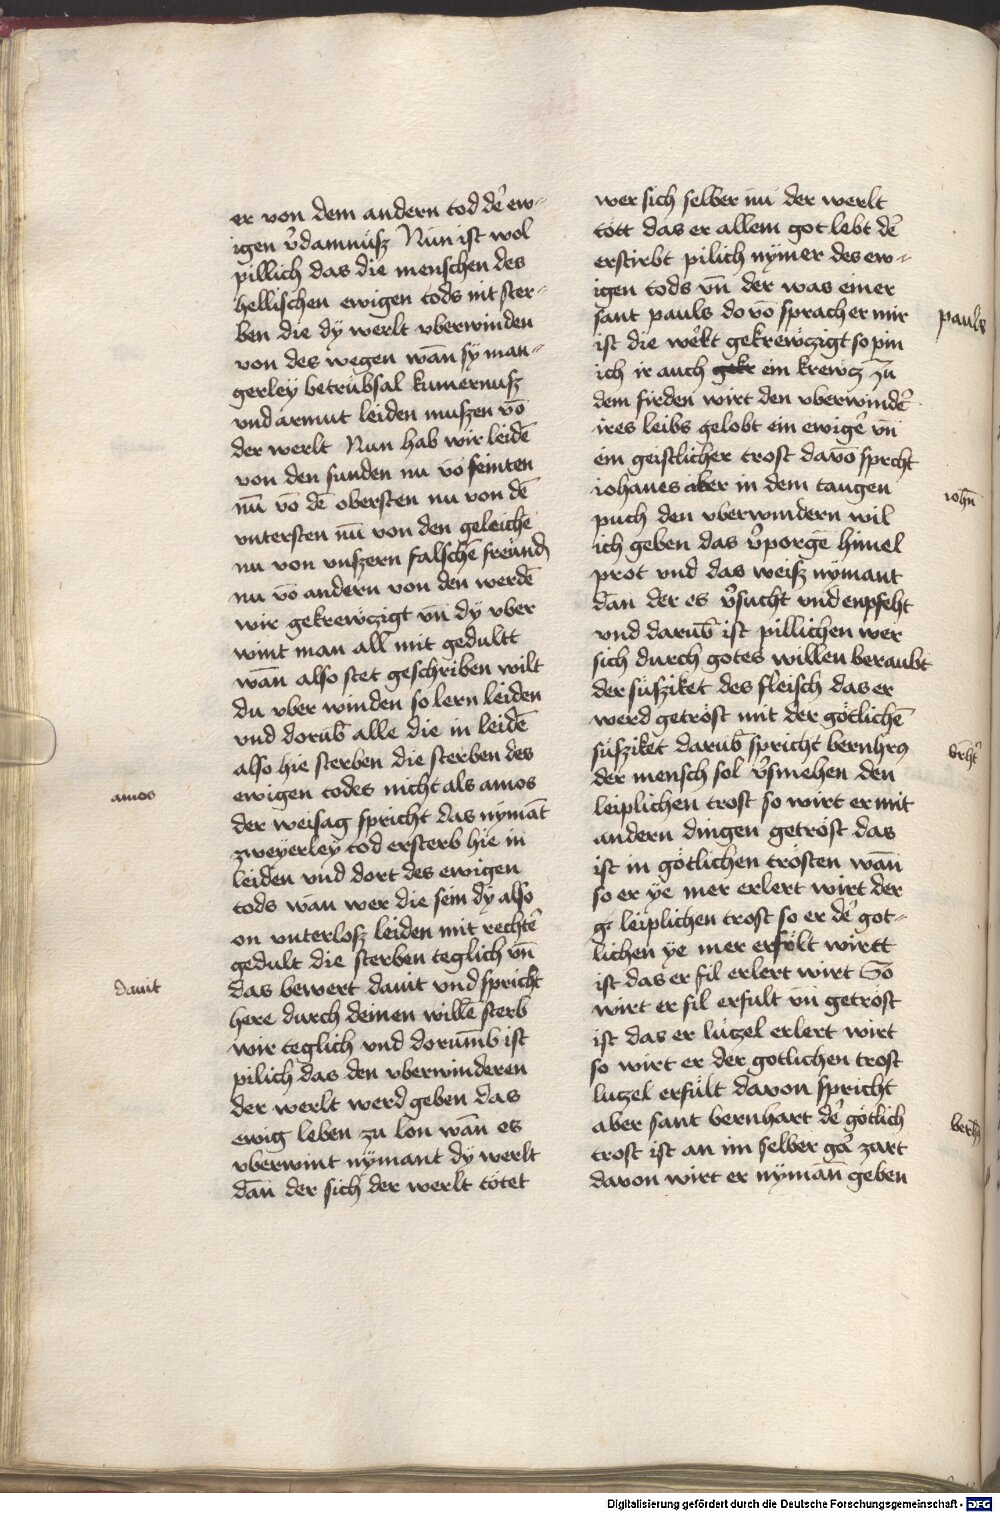 er von dem andern tod de᷑ ew-
igen v᷑damnüsz Nun ist wol
pillich das die menschen des
hellischen ewigen tods nit ster-
ben die dÿ werlt vberwinden
von des wegen wān sÿ man-
gerleÿ betrübsal kumernusz
vnd armut leiden muszen vō
der werlt Nun hab wir leidē
von den sunden nu vō feinten
nū vō dē obersten nu von dē
vntersten nū von den geleichē
nu von vnszern falschē freünd
nu vō andern von den werdē
wir gekrewczigt vn̄ dÿ vber
wint man all mit gedultt
wān also stet geschriben wilt
du vber winden so lern leiden
vnd dorub̄ alle die in leidē
also hie sterben die sterben des
ewigen todes nicht als amos
amos
der weisag spricht das nÿmāt
zweÿerleÿ tod ersterb hie in
leiden vnd dort des ewigen
tods wan wer die sein dÿ also
on vnterlosz leiden mit rechtē
gedult die sterben teglich vn̄
das bewert dauit vnd spricht
dauit
here durch deinen willē sterb
wir teglich vnd dorūmb ist
pilich das den vberwinderen
der werlt werd geben das
ewig leben zu lon wān es
vberwint nÿmant dÿ werlt
dān der sich der werlt tötet
wer sich selber nu der werlt
tött das er allem got lebt dē
erstirbt pilich nÿmer des ew-
igen tods vn̄ der was einer
sant pauls do vō sprach er mir
pauls
ist die werkt gekrewczigt so pin
ich ir auch gekr ein krewcz zū
dem firden wirt den vberwindē
ires leibs gelobt ein ewige᷑ vn̄
ein geistlicher trost davō sprcht
iohanes aber in dem taugen
ioh̄n
puch den vberwindern wil
ich geben das v᷑porgē himel
prot vnd das weisz nÿmant
dān der es v᷑sucht vnd enpfeht
vnd darub̄ ist pillichen wer
sich durch gotes willen beraubt
der süsziket des fleisch das er
werd getröst mit der götlichē
süsziket darub̄ spricht bernhr9
der mensch sol v᷑smehen den
leiplichen trost so wirt er mit
andern dingen getröst das
ist in götlichen trösten wān
so er ÿe mer erlert wirt der
g leiplichen trost so er de᷑ got-
lichen ÿe mer erfölt wirtt
ist das er fil erlert wirt So
wirt er fil erfult vn̄ getröst
ist das er lüczel erlert wirt
so wirt er der gotlichen trost
luczel erfült davon spricht
aber sant bernhart de᷑ götlich
trost ist an im selber ga᷑ zart
davon wirt er nÿmān geben
Digitalisierung gefördert durch die Deutsche Forschungsgemeinschaft - DFG